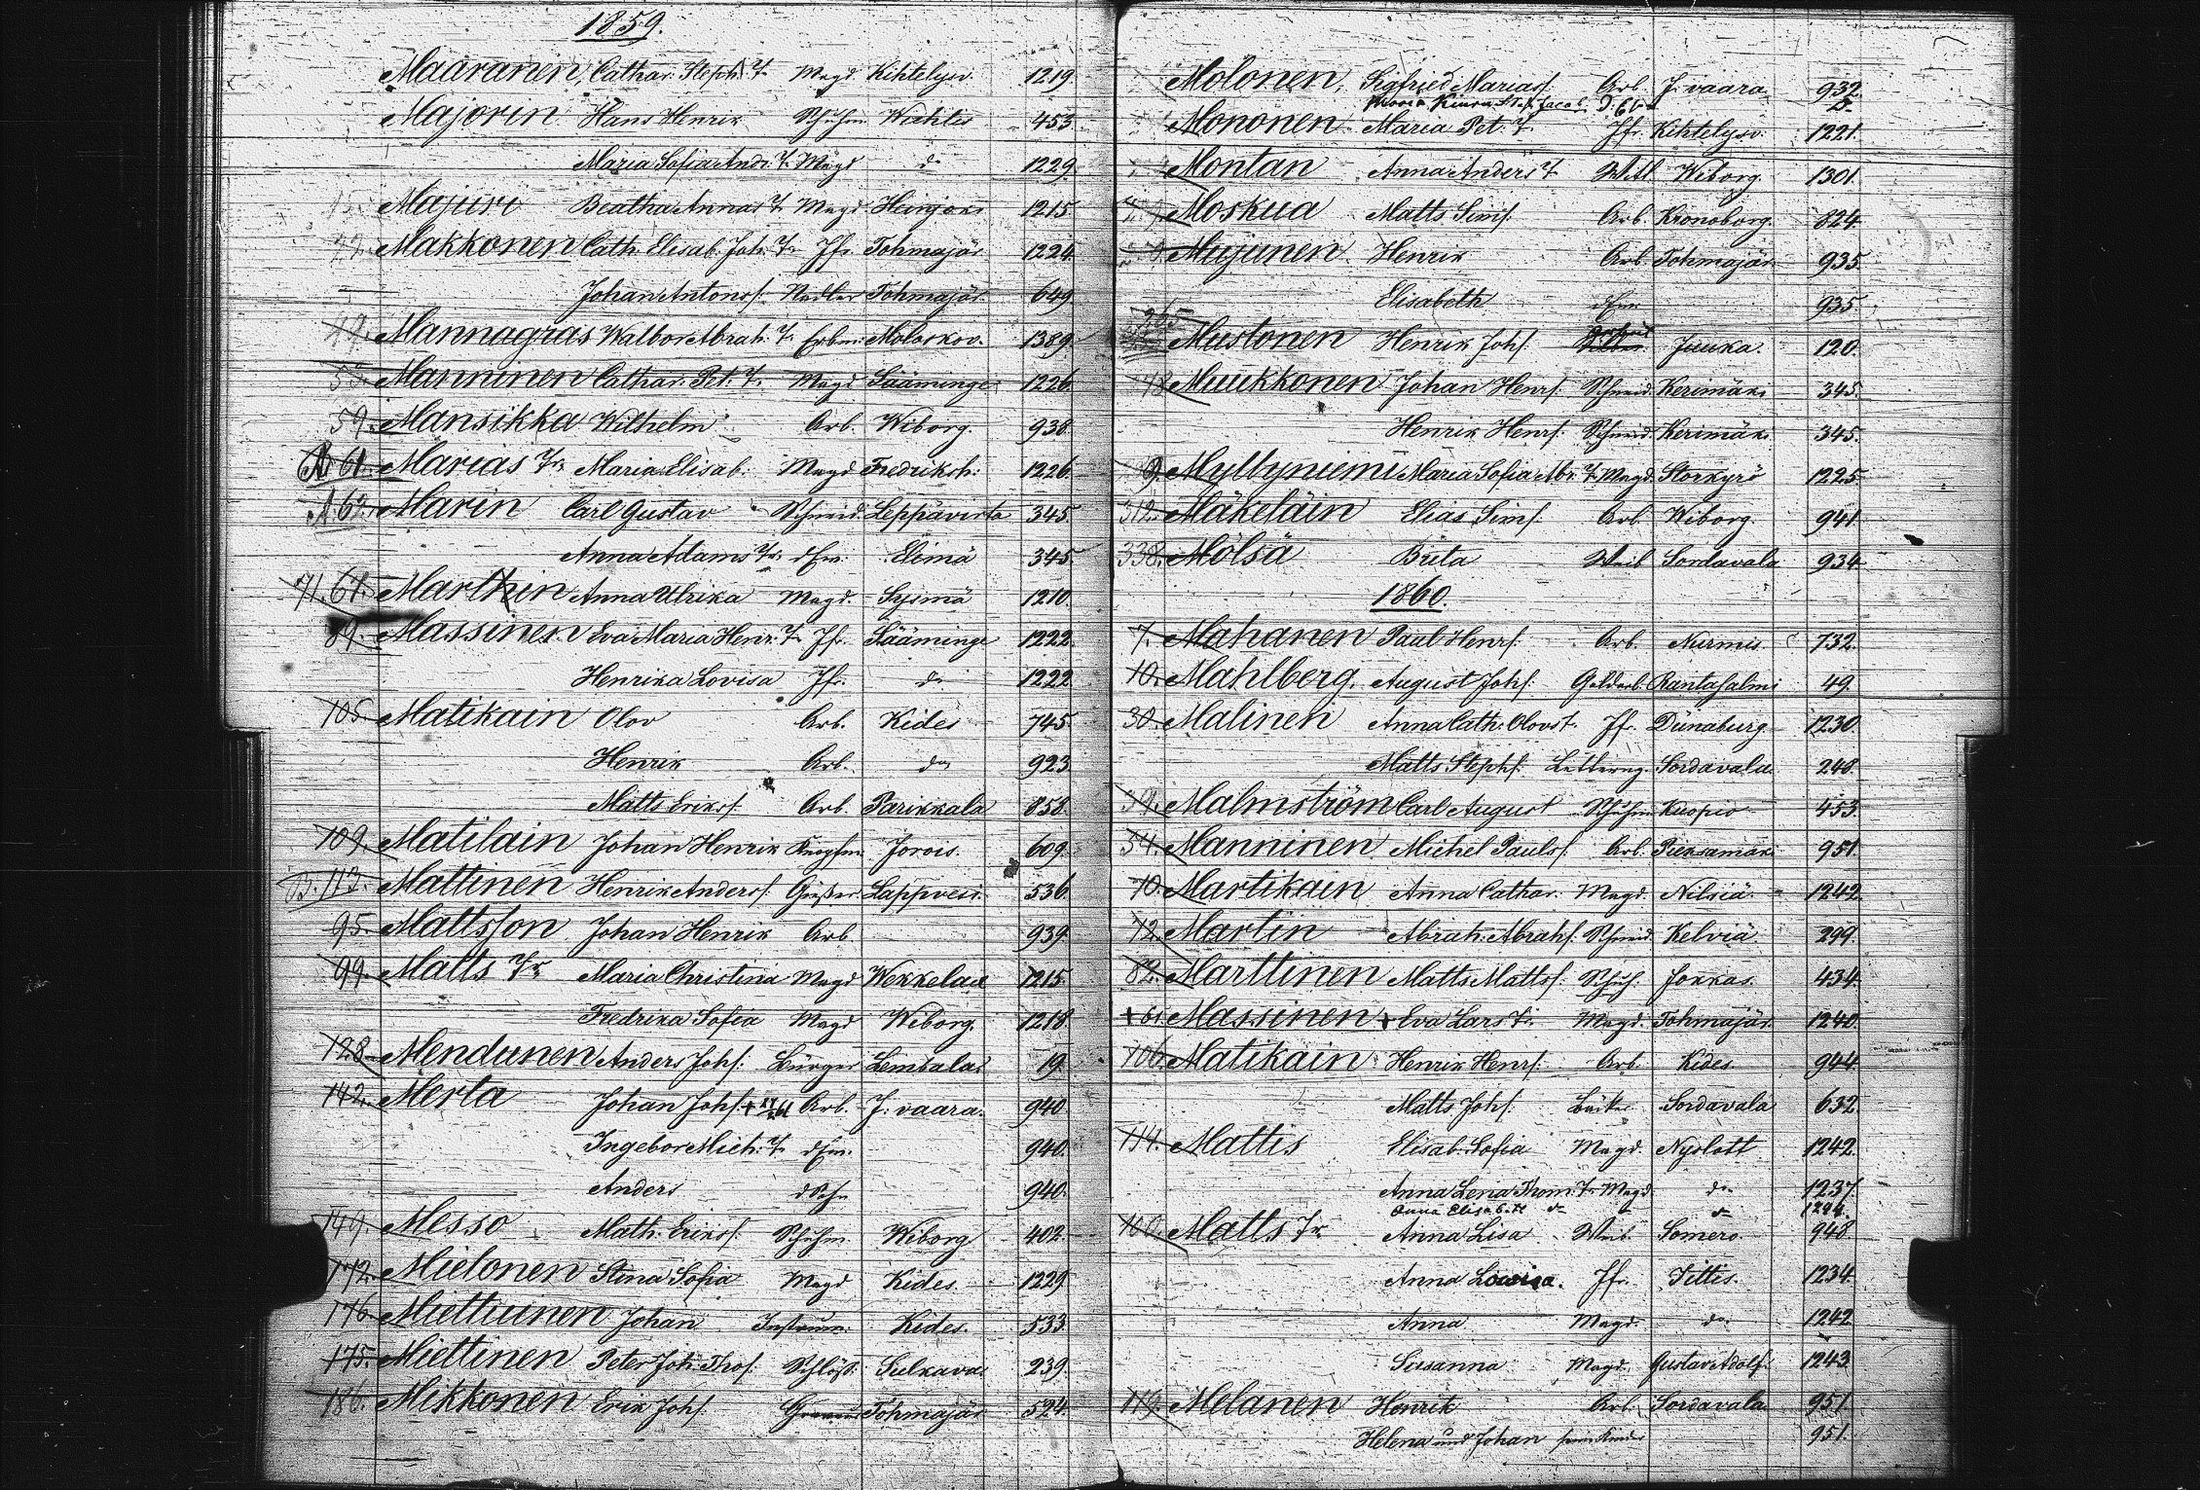 1859.
Maaranen Cathar. Steph. Tr Magd Kihtelysv. 1219
Majorin Hans Henrik Schuhm. 453
Maria Sofia Andr. Tr Magd do 1229
Majuri Beatha Annas Tr Magd Heinjoki 1215
Makkonen Cath. Elisab. Joh. Tr Jfr. Tohmajär. 1224
Johan Antons. Tohmajär. 649
Mannagras Walbor Abrah. Tr 1389
Manninen Cathar. Pet. Tr. Magd Sääminge 1226
59. Mansikka Wilhelm Arb. Wiborg. 938
61. Marias Tr Maria Elisab. Magd Fredriksh. 1226
A. 62. Marin Carl Gustav Schmid. Leppävirta 345
Anna Adams Tr. dFr. Elimä 345
71. 67. Marthin Anna Ulrika Magd. Sysmä 1210
89. Massinen Eva Maria Henr. Tr Jfr. Sääminge 1222
Henrika Lovisa Jfr. do 1222
105. Matikain Olov Arb. Kides 745
Henrik Arb. do 923
Matts Eriks. Arb. Parikkala 858
109. Matilain Johan Henrik Jorois. 609
B. 113. Mattinen Henrik Anders. Gießer Lappvesi. 536
95. Mattsson Johan Henrik Arb. 939
99. Matts Tr Maria Christina Magd Wekkelax 1215
Fredrika Sofia Magd Wiborg. 1218
128. Mendunen Anders Johs. Bürger Lembalas 19
142. Merta Johan Johs. Arb. J. vaara. 940
Ingebor Mich. Tr dFr. 940.
Anders dSohn 940.
149. Messo Math. Eriks. Schuhm. Wiborg 402
172. Mielonen Stina Sofia Magd Kides. 1229
176. Miettuinen Johan Instrum. Kides. 533
175. Miettinen Peter Joh. Thos. Schloß. Sulkava 239.
186. Mikkonen Erik Johs. Tohmajär 524.
Molonen, Sigfried Marias. Arb. J. vaara 932.
Mononen Maria Pet. Tr. Jfr. Kihtelysv. 1221.
Montan Anna Anders Tr Wiborg. 1301.
Moskua Matts Sims. Arb. Kronoborg. 624.
Mujunen Henrik Arb. Tohmajär. 935
Elisabeth dFr 935
265
Mustonen Henrik Johs. Juuka. 120.
Muukkonen Johan Henrs. Schmid. Kerimäki 345.
Henrik Henrs. Schmid. Kerimäki 345.
9. Myllyniemi Maria Sofia Abr. Tr Magd. Storkyrö 1225
312. Mäkeläin Elias Sims. Arb. Wiborg. 941.
338. Mölsä Brita Weib Sordavala 934
1860.
7. Mahanen Paul Henrs. Arb. Nurmis 732.
10. Mahlberg. August Johs. Goldarb. Rantasalmi 49.
30. Malinen Anna Cath. Olovs t. Jfr. Dünaburg 1230.
Matts Stephs. Sordavala 248.
39. Malmström Carl August Schuhm Kuopio 453.
54. Manninen Michel Pauls. Arb. Pieksamäki 951
70. Martikain Anna Cathar. Magd. Nilsiä 1242
72. Martin Abrah. Abrahs. Schmid. Kelviä 299.
82. Marttinen Matts Matts. Schuh. Jokkas. 434
+ 61. Massinen + Eva Lars Tr. Magd. Tohmajär. 1240
106. Matikain Henrik Henrs. Arb. Kides 944
Matts Johs. Bäcker Sordavala 632
114. Mattis Elisab. Sofia Magd. Nyslott 1242.
Anna Lena Thom. Tr Magd do 1237.
Anna Elisabeth do do 1224.
100. Matts Tr. Anna Lisa Weib. Somero 948
Anna Lovisa. Jfr. Iittis. 1234
Anna Magd. do 1242
Susanna Magd. Gustav Adolf. 1243
119. Melanen Henrik Arb. Sordavala 951.
Helena und Johan 951.